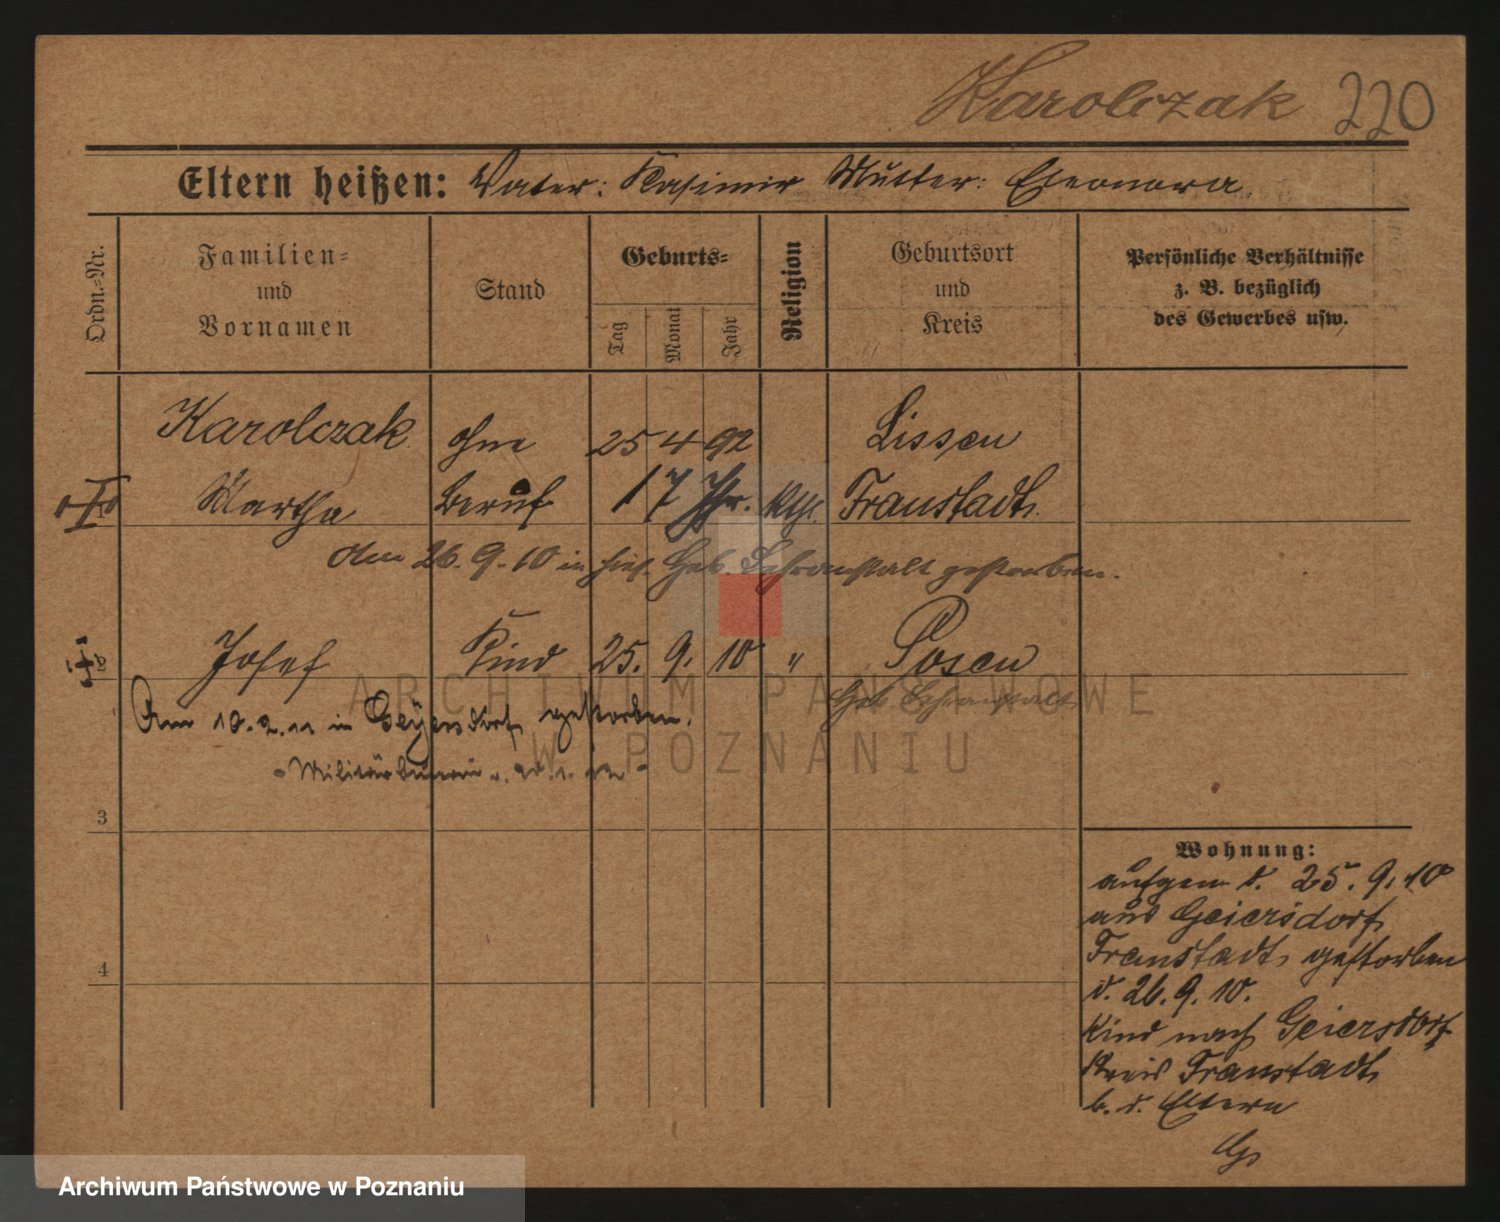 Karolczak 220
Eltern heißen: Vater: Kasimir Mutter: Eleonora
Ordn.-Nr.
Familien-
und
Vornamen
Stand
Geburts-
Tag
Monat
Jahr
Religion
Geburtsort
und
Kreis
Persönliche Verhältnisse
z. B. bezüglich
des Gewerbes usw.
Karolczak ohne 25 4 92 Lissen
Martha Beruf 17 Jhr. kth. Fraustadt
Am 26. 9. 10 in hies. Heb. Lehranstalt gestorben.
2 Josef Kind 25. 9. 10 " Posen
Heb. Lehranstalt
Am 10. 2. 11 in Geyersdorf gestorben.
3
4
Wohnung:
aufgen. d. 25. 9. 10
aus Geiersdorf
Fraustadt, gestorben
d. 26. 9. 10.
Kind nach Geiersdorf
Kreis Fraustadt
b. d. Eltern
ARCHIWUM PAŃSTWOWE
W POZNANIU
Archiwum Państwowe w Poznaniu